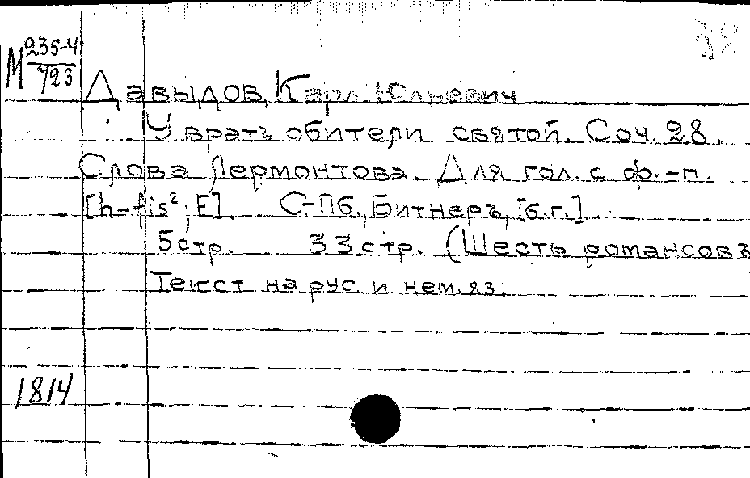 М 235-4
723
Давыдов, Карл Юльевич
У вратъ обители святой. Соч. 28.
Слова Лермонтова. Для гол. с ф.-п.
[h-fis²; E]. С-Пб, Битнеръ, [б.г.]
5 стр. 33 стр. (Шесть романсовъ
Текст на рус. и нем. яз.
1814